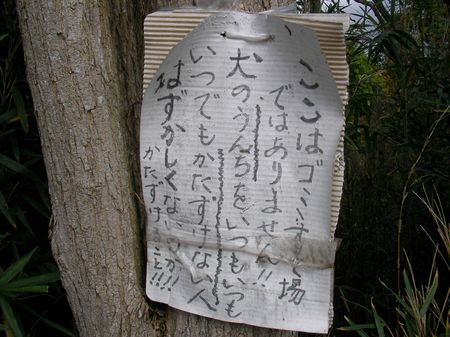 ここはゴミすて場
ではありません!!
犬のうんちをいつもいつも
いつでもかたずけない人
はずかしくないのか!!
かたずけ